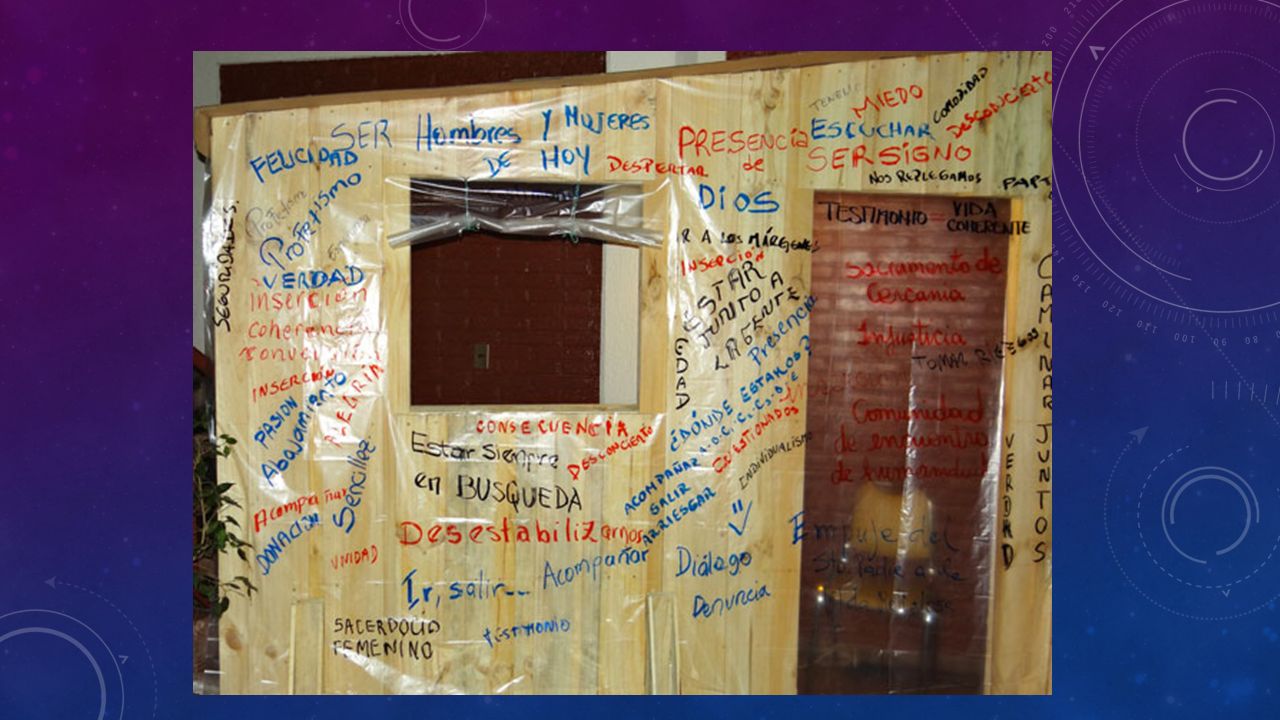 SEGURIDADES.
SER Hombres Y MUJERES
DE HOY
FELICIDAD
Profetismo
VERDAD
Inserción
coherencia
conversión
INSERCIÓN
ALEGRIA
PASION
Abajamiento
Sencillez
Acompañar
DONACIÓN
UNIDAD
DESPERTAR
PRESENCIA
de
DIOS
MIEDO
COMODIDAD
DESCONCIERTO
ESCUCHAR
SER SIGNO
NOS REPLEGAMOS
IR A LOS MÁRGENES
INSERCIÓN
ESTAR
JUNTO A
LA GENTE
Presencia
EDAD
¿DÓNDE ESTAMOS?
CUESTIONADOS
INDIVIDUALISMO
ACOMPAÑAR
SALIR
ARRIESGAR
CONSECUENCIA
DESCONCIERTO
Estar siempre
en BUSQUEDA
Desestabilizarnos
Ir, salir... Acompañar
SACERDOCIO
FEMENINO
TESTIMONIO
Diálogo
Denuncia
TESTIMONIO = VIDA
COHERENTE
Sacramento de
Cercania
Injusticia
TOMAR RIESGOS
Comunidad
de encuentro
de humanidad
Empuje del
CAMINAR JUNTOS
VERDAD